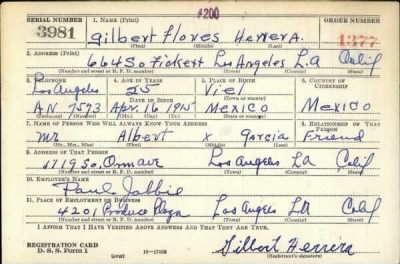 #200
SERIAL NUMBER 1. NAME (Print) ORDER NUMBER
3981 Gilbert Flores Herrera. 1377
(First) (Middle) (Last)
2. ADDRESS (Print)
664 So Fickett Los Angeles L.A Calif
(Number and street or R. F. D. number) (Town) (County) (State)
3. TELEPHONE 4. AGE IN YEARS 5. PLACE OF BIRTH 6. COUNTRY OF CITIZENSHIP
Los Angeles 25 Viel
DATE OF BIRTH (Town or county)
AN. 7573 Apr. 16 1915 Mexico Mexico
(Exchange) (Number) (Mo.) (Day) (Yr.) (State or country)
7. NAME OF PERSON WHO WILL ALWAYS KNOW YOUR ADDRESS 8. RELATIONSHIP OF THAT PERSON
Mr Albert X Garcia Friend
(Mr., Mrs., Miss) (First) (Middle) (Last)
9. ADDRESS OF THAT PERSON
1719 So. Los Angeles LA Calif
(Number and street or R. F. D. number) (Town) (County) (State)
10. EMPLOYER'S NAME
Paul
11. PLACE OF EMPLOYMENT OR BUSINESS
4201 Produce Plaza Los Angeles LA Calif
(Number and street or R. F. D. number) (Town) (County) (State)
I AFFIRM THAT I HAVE VERIFIED ABOVE ANSWERS AND THAT THEY ARE TRUE.
REGISTRATION CARD
D. S. S. Form 1 (over) Gilbert Herrera
(Registrant's signature)